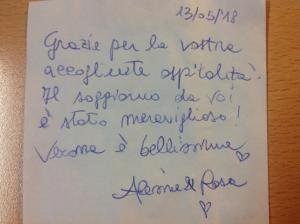 13/05/'18
Grazie per la vostra
accogliente ospitalità.
Il soggiorno da voi
è stato meraviglioso!
Verona è bellissima
& Rosa